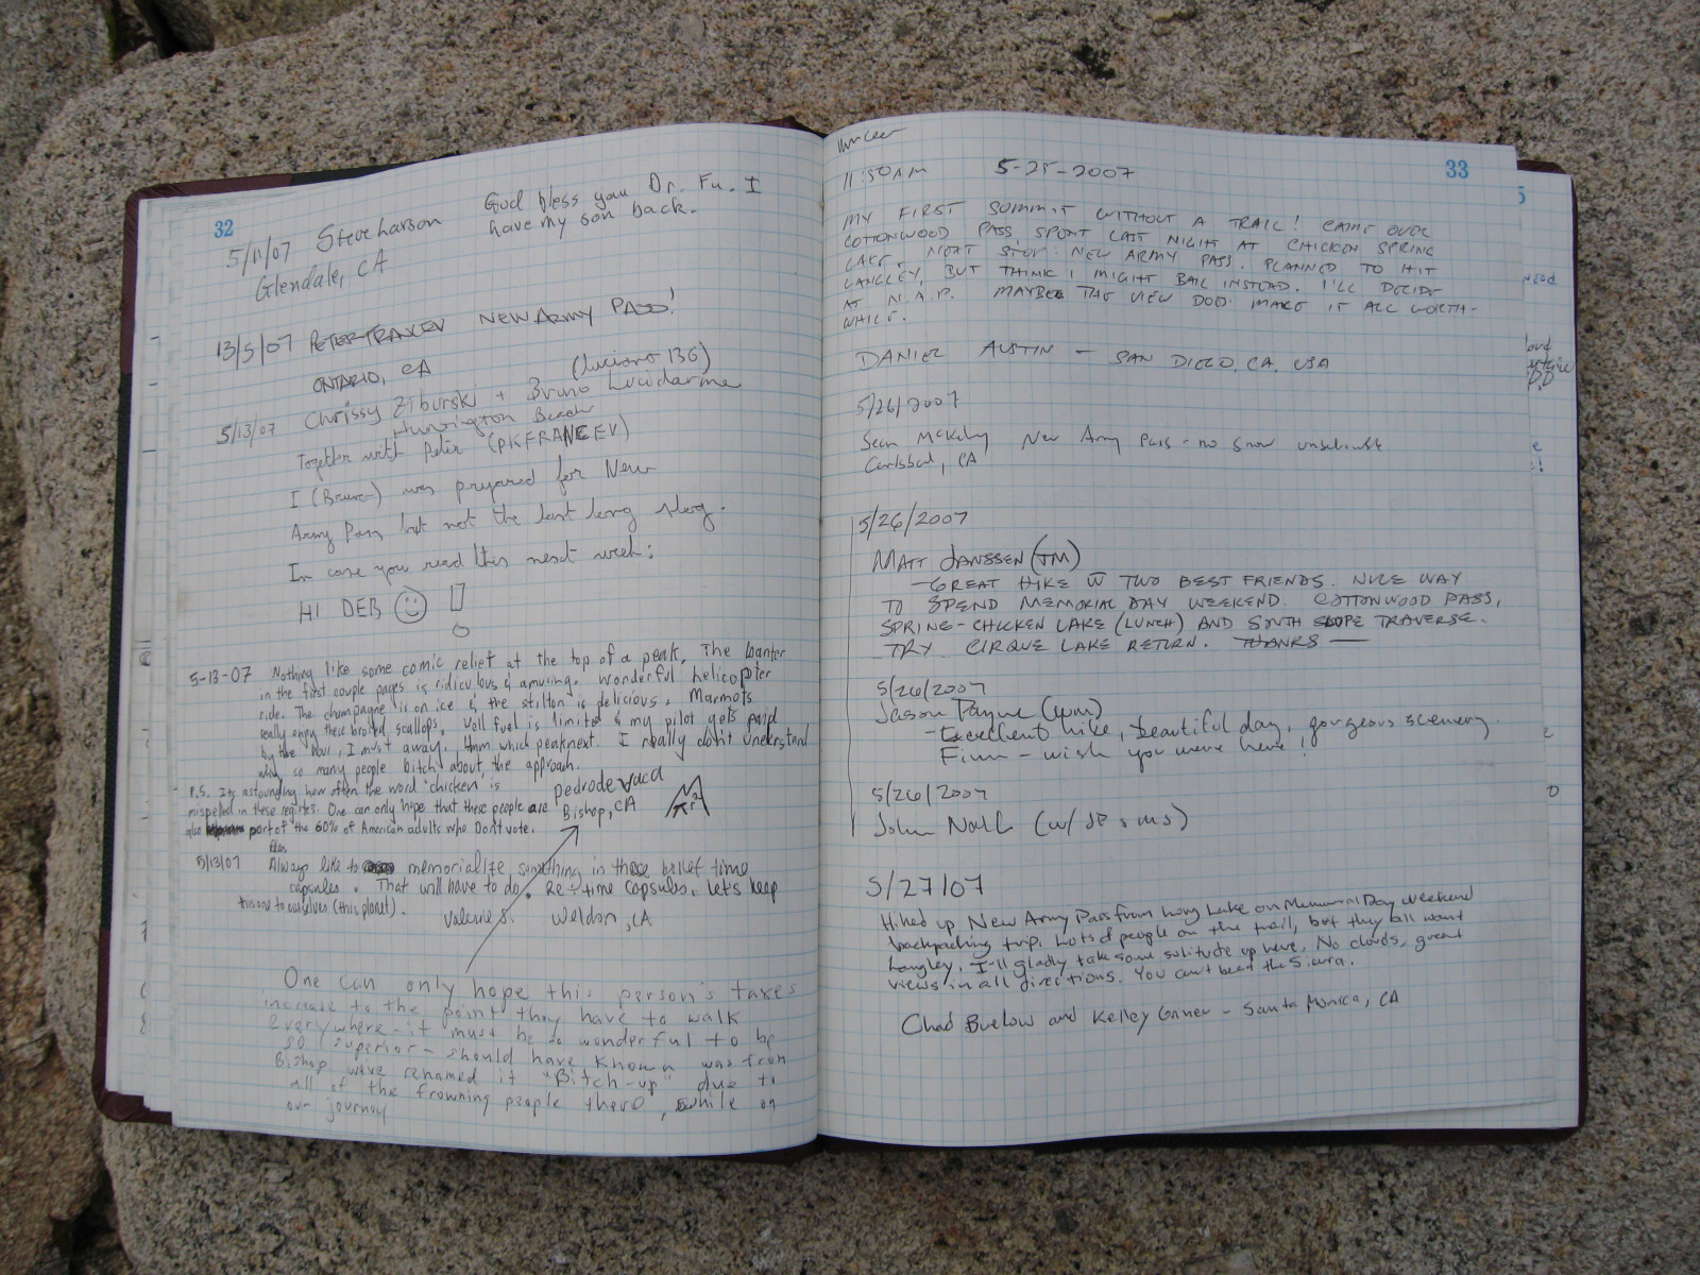 32
5/11/07 Steve Larson God bless you Dr. Fu. I
have my son back.
Glendale, CA
13/5/07 PETER NEW ARMY PASS!
ONTARIO, CA
(Luciano 136)
5/13/07 Chrissy Ziburski + Bruno Lucidarme
Huntington Beach
Together with Peter (PKFRANCEV)
I (Bruno) was prepared for New
Army Pass but not the last long slog.
In case you read this next week:
HI DEB ☺ !
5-13-07 Nothing like some comic relief at the top of a peak, The banter
in the first couple pages is ridiculous & amusing. Wonderful helicopter
ride. The champagne is on ice & the stilton is delicious. Marmots
really enjoy these broiled scallops. Well fuel is limited & my pilot gets paid
by the hour, I must away. Hmm which peak next. I really don't understand
why so many people bitch about the approach.
pedrodevaca
Bishop, CA
P.S. Its astounding how often the word "chicken" is
mispelled in these registes. One can only hope that these people are
also part of the 60% of American adults who Don't vote.
5/13/07 Always like to memorialize something in these bullet time
capsules. That will have to do. Re: time capsules. Let's keep
this one to ourselves (this planet).
Valerie S. Weldon, CA
One can only hope this person's taxes
increase to the point they have to walk
everywhere - it must be so wonderful to be
so superior - should have known was from
Bishop weve renamed it "Bitch-up" due to
all of the frowning people there, while on
our journey
33
11:50AM 5-25-2007
MY FIRST SUMMIT WITHOUT A TRAIL! CAME OVER
COTTONWOOD PASS SPENT LAST NIGHT AT CHICKEN SPRING
LAKE. NEXT STOP: NEW ARMY PASS. PLANNED TO HIT
LANGLEY, BUT THINK I MIGHT BAIL INSTEAD. I'LL DECIDE
AT N.A.P. MAYBE THE VIEW DOD MAKE IT ALL WORTH-
WHILE.
DANIEL AUSTIN - SAN DIEGO, CA, USA
5/26/2007
Sean New Army Pass - no snow
Carlsbad, CA
5/26/2007
MATT JANSSEN (JM)
- GREAT HIKE W TWO BEST FRIENDS. NICE WAY
TO SPEND MEMORIAL DAY WEEKEND. COTTONWOOD PASS,
SPRING-CHICKEN LAKE (LUNCH) AND SOUTH SLOPE TRAVERSE.
TRY CIRQUE LAKE RETURN. THANKS —
5/26/2007
Jason Payne
- Excellent hike, beautiful day, gorgeous scenery.
Finn - wish you were here!
5/26/2007
John Nall (w/ JP & MJ)
5/27/07
Hiked up New Army Pass from Long Lake on Memorial Day Weekend
backpacking trip. Lots of people on the trail, but they all want
Langley. I'll gladly take some solitude up here. No clouds, great
views in all directions. You can't beat the Sierra.
Chad Buelow and Kelley - Santa Monica, CA